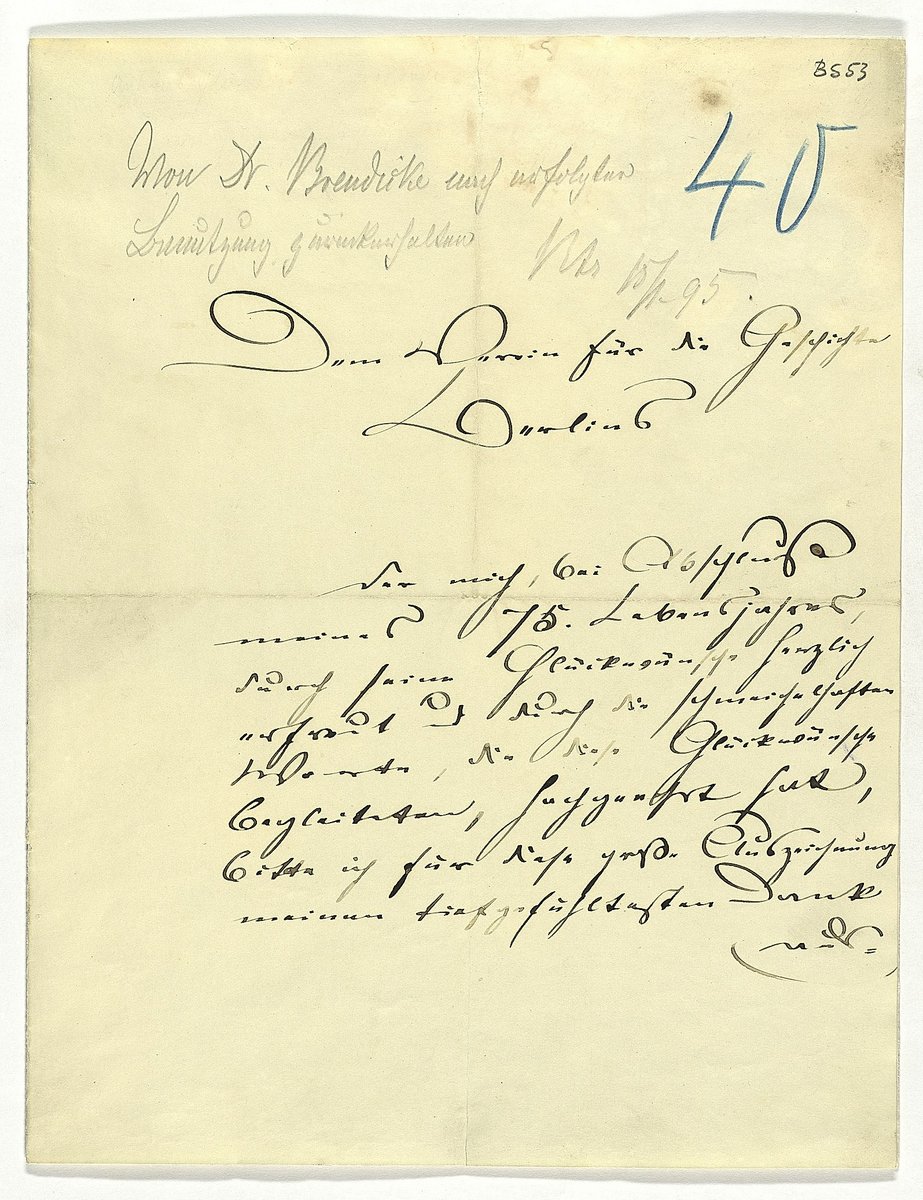 B553
40
Von Dr. Brendicke nach erfolgter
Benutzung zurückerhalten
95.
Dem Verein für die Geschichte
Berlins
der mich, bei Abschluß
meines 75. Lebensjahres,
durch seine Glückwünsche herzlich
erfreut und durch die schmeichelhaften
Worte, die diese Glückwünsche
begleiteten, hochgeehrt hat,
bitte ich für diese große Auszeichnung
meinen tiefgefühltesten Dank
aus=